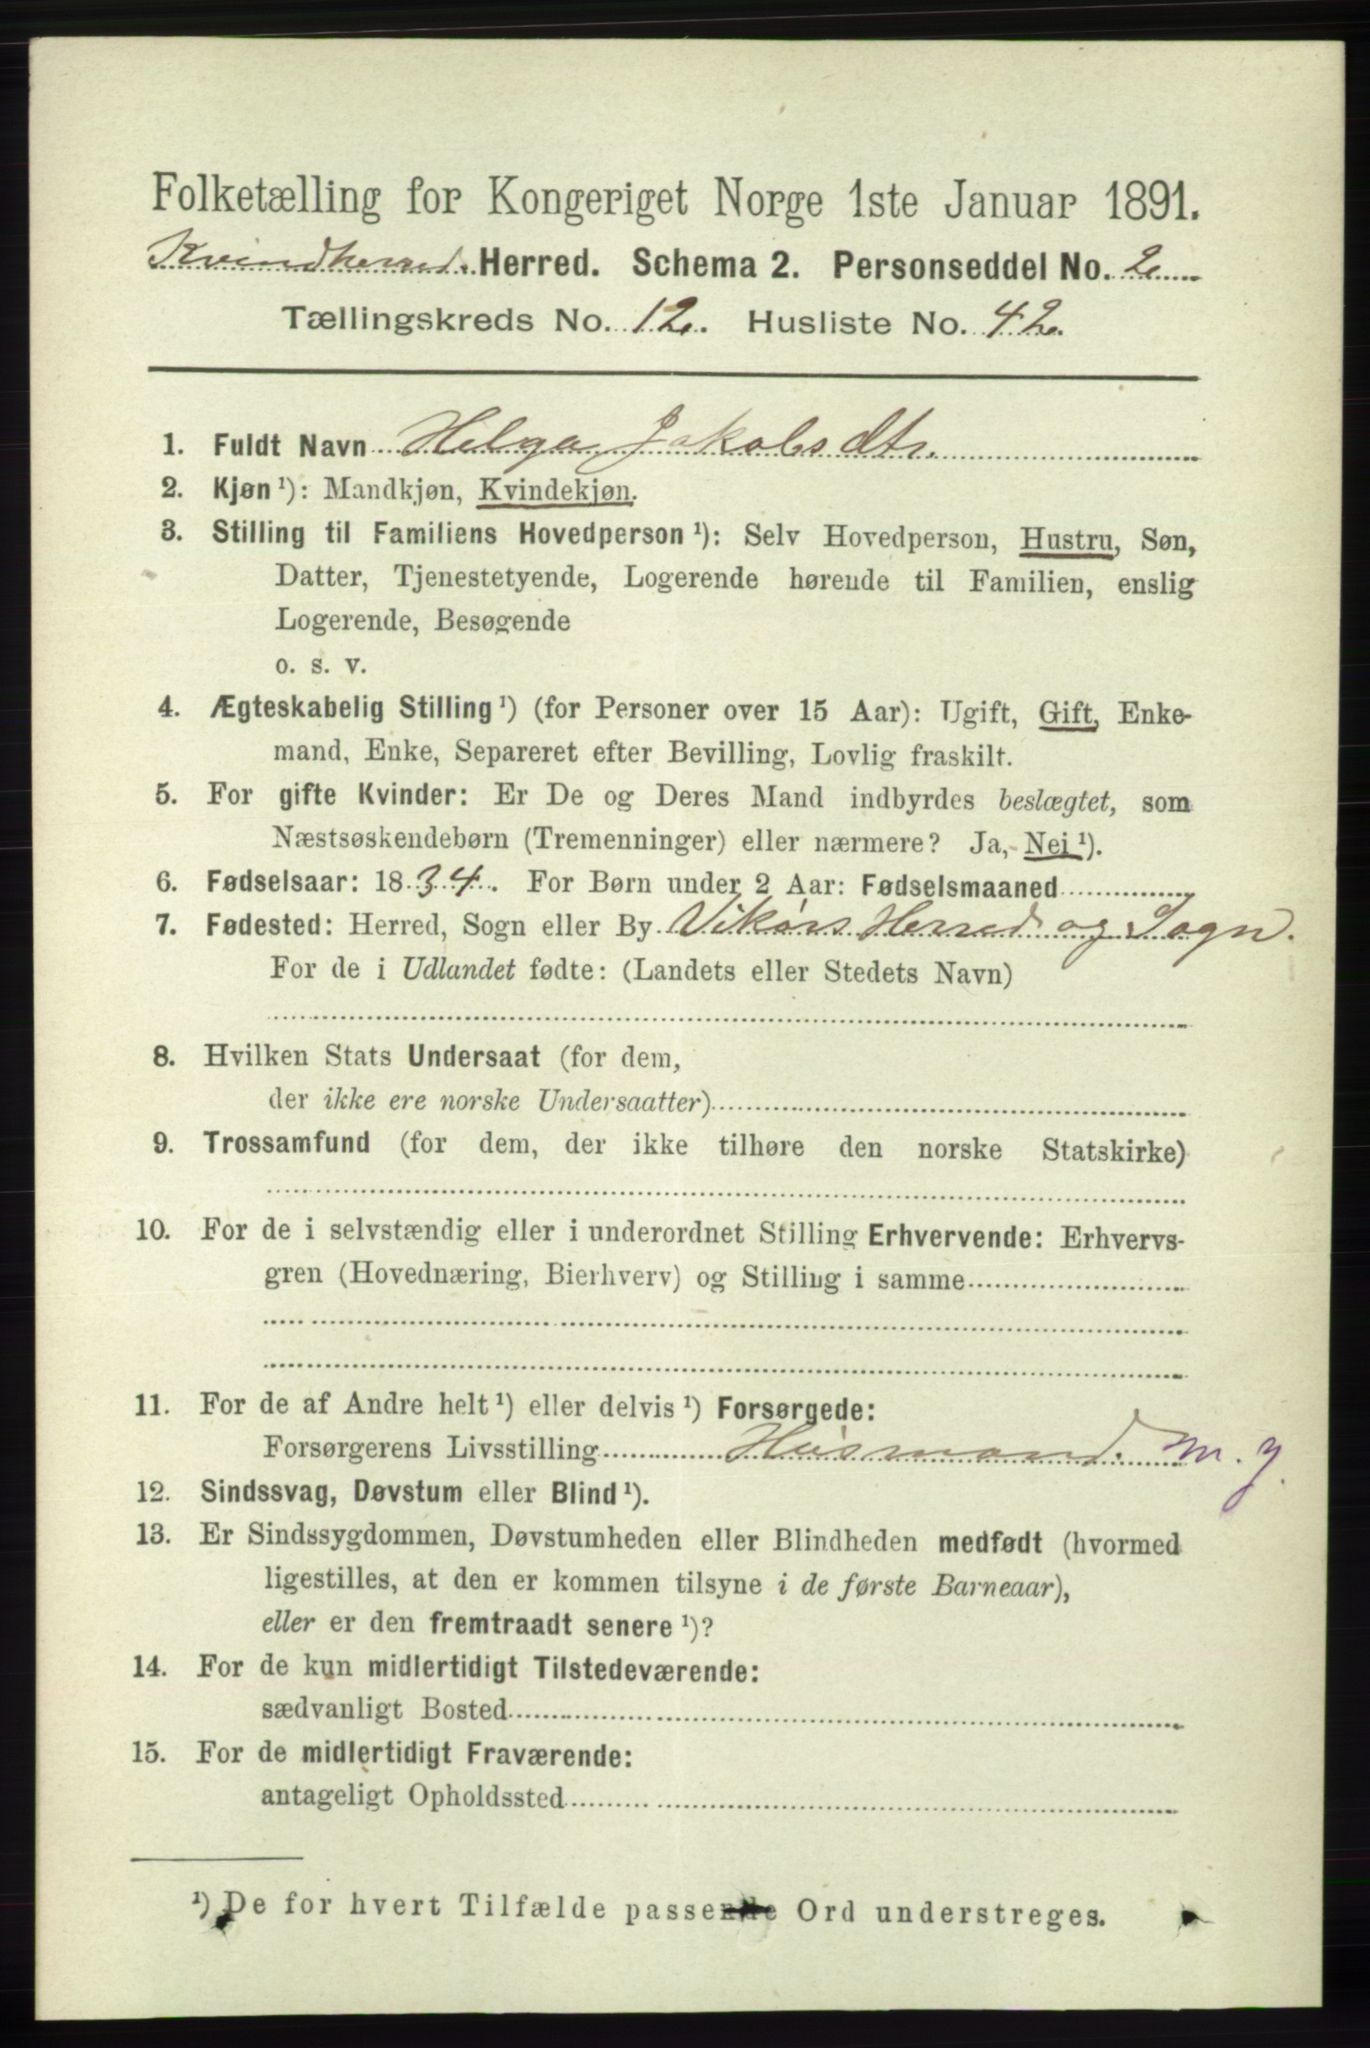 Folketælling for Kongeriget Norge 1ste Januar 1891.
Kvindherred. Herred. Schema 2. Personseddel No. 2
Tællingskreds No. 12. Husliste No. 42.
1. Fuldt Navn Helga Jakobsdtr.
2. Kjøn ¹): Mandkjøn, Kvindekjøn.
3. Stilling til Familiens Hovedperson ¹): Selv Hovedperson, Hustru, Søn,
Datter, Tjenestetyende, Logerende hørende til Familien, enslig
Logerende, Besøgende
o. s. v.
4. Ægteskabelig Stilling ¹) (for Personer over 15 Aar): Ugift, Gift, Enke-
mand, Enke, Separeret efter Bevilling, Lovlig fraskilt.
5. For gifte Kvinder: Er De og Deres Mand indbyrdes beslægtet, som
Næstsøskendebørn (Tremenninger) eller nærmere? Ja, Nei ¹).
6. Fødselsaar: 1834. For Børn under 2 Aar: Fødselsmaaned
7. Fødested: Herred, Sogn eller By Vikørs Herred og Sogn.
For de i Udlandet fødte: (Landets eller Stedets Navn)
8. Hvilken Stats Undersaat (for dem,
der ikke ere norske Undersaatter)
9. Trossamfund (for dem, der ikke tilhøre den norske Statskirke)
10. For de i selvstændig eller i underordnet Stilling Erhvervende: Erhvervs-
gren (Hovednæring, Bierhverv) og Stilling i samme
11. For de af Andre helt ¹) eller delvis ¹) Forsørgede:
Forsørgerens Livsstilling Husmand. m. j.
12. Sindssvag, Døvstum eller Blind ¹).
13. Er Sindssygdommen, Døvstumheden eller Blindheden medfødt (hvormed
ligestilles, at den er kommen tilsyne i de første Barneaar),
eller er den fremtraadt senere ¹)?
14. For de kun midlertidigt Tilstedeværende:
sædvanligt Bosted
15. For de midlertidigt Fraværende:
antageligt Opholdssted
¹) De for hvert Tilfælde passende Ord understreges.